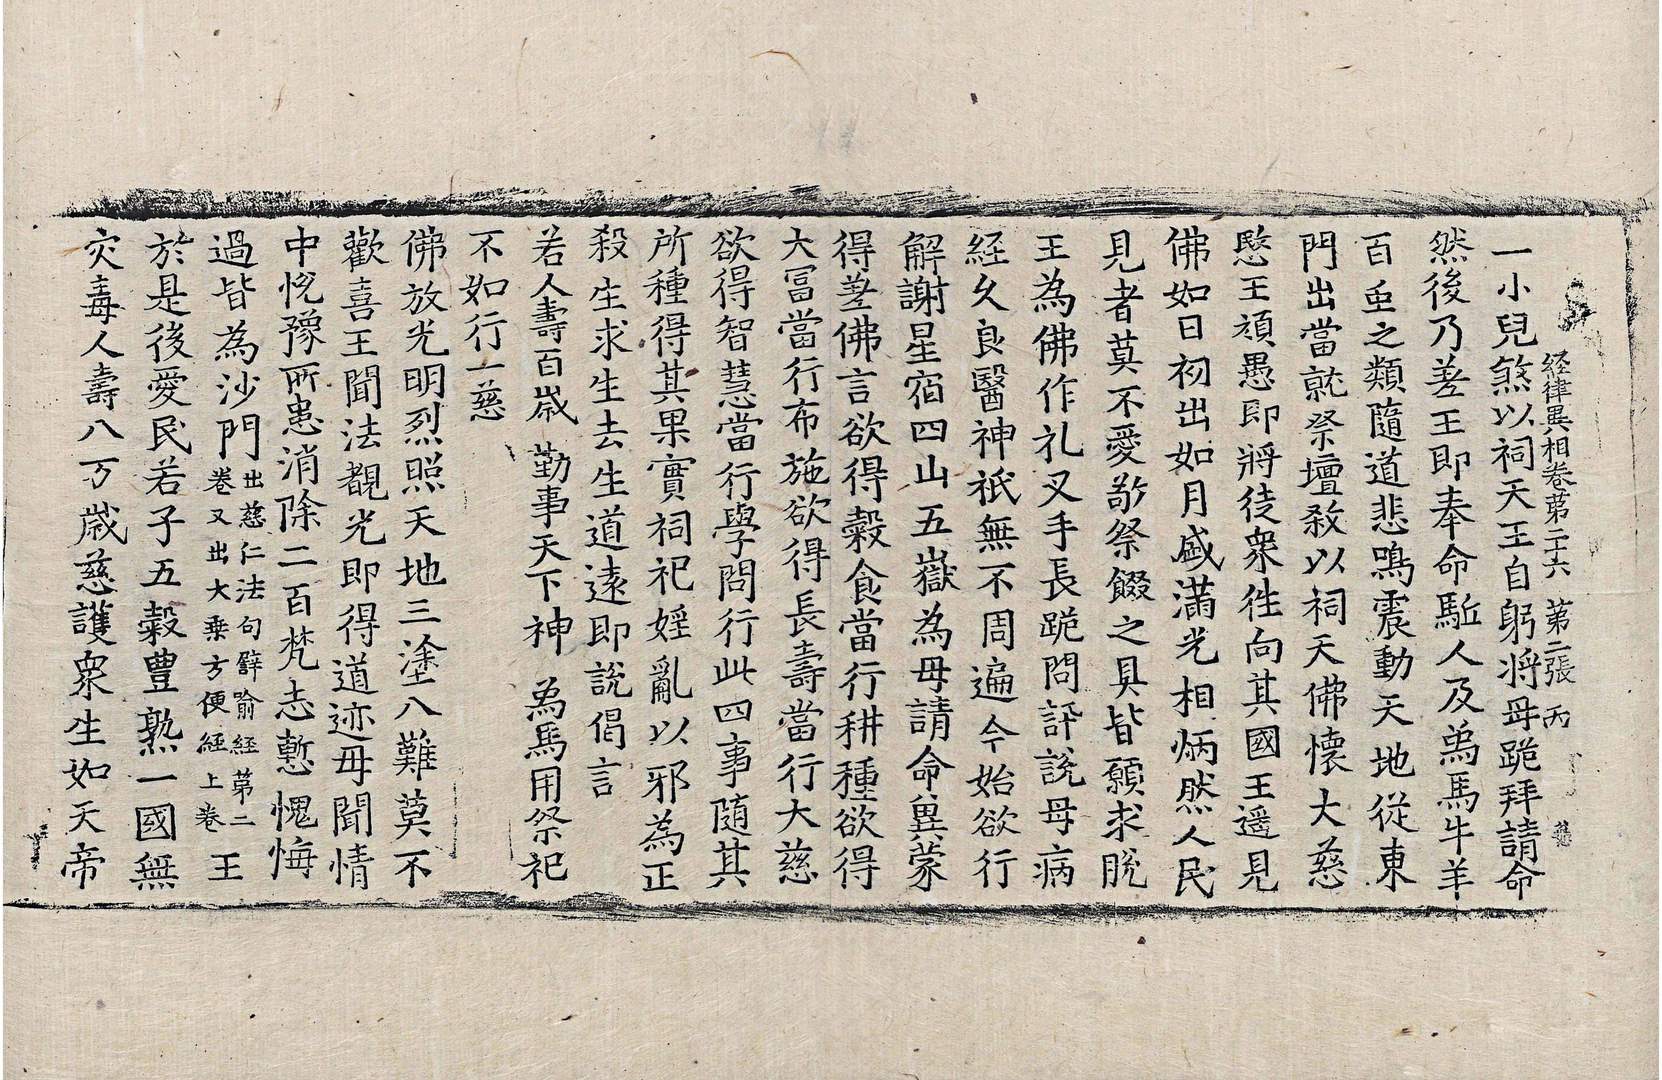 経律異相卷苐二十六 第二張 丙
一小兒煞以祠天王自躬將母跪拜請命
然後乃差王即奉命駈人及爲馬牛羊
百重之類隨道悲鳴震動天地從東
門出當就祭壇敎以祠天佛懷大慈
愍王頑愚即將徒衆徃向其國王遥見
佛如日初出如月盛滿光相炳然人民
見者莫不愛敬祭餟之具皆願求脫
王為佛作礼叉手長跪問訊說母病
経久良醫神祇無不周遍今始欲行
解謝星宿四山五嶽為母請命兾蒙
得差佛言欲得穀食當行耕種欲得
大冨當行布施欲得長壽當行大慈
欲得智慧當行學問行此四事随其
所種得其果實祠祀婬亂以邪為正
殺生求生去生道遠即說偈言
若人壽百歲 勤事天下神 爲馬用祭祀
不如行一慈
佛放光明烈照天地三塗八難莫不
歡喜王聞法覩光即得道迹母聞情
中恱豫所患消除二百梵志慙愧悔
過皆為沙門出慈仁法句辟喻経苐二卷又出大乗方便経上卷王
於是後愛民若子五穀豊熟一國無
灾毒人壽八万歲慈護衆生如天帝